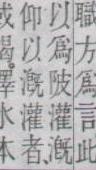 職方爲言此
以爲陂灌溉
仰以溉灌者、
澤水本